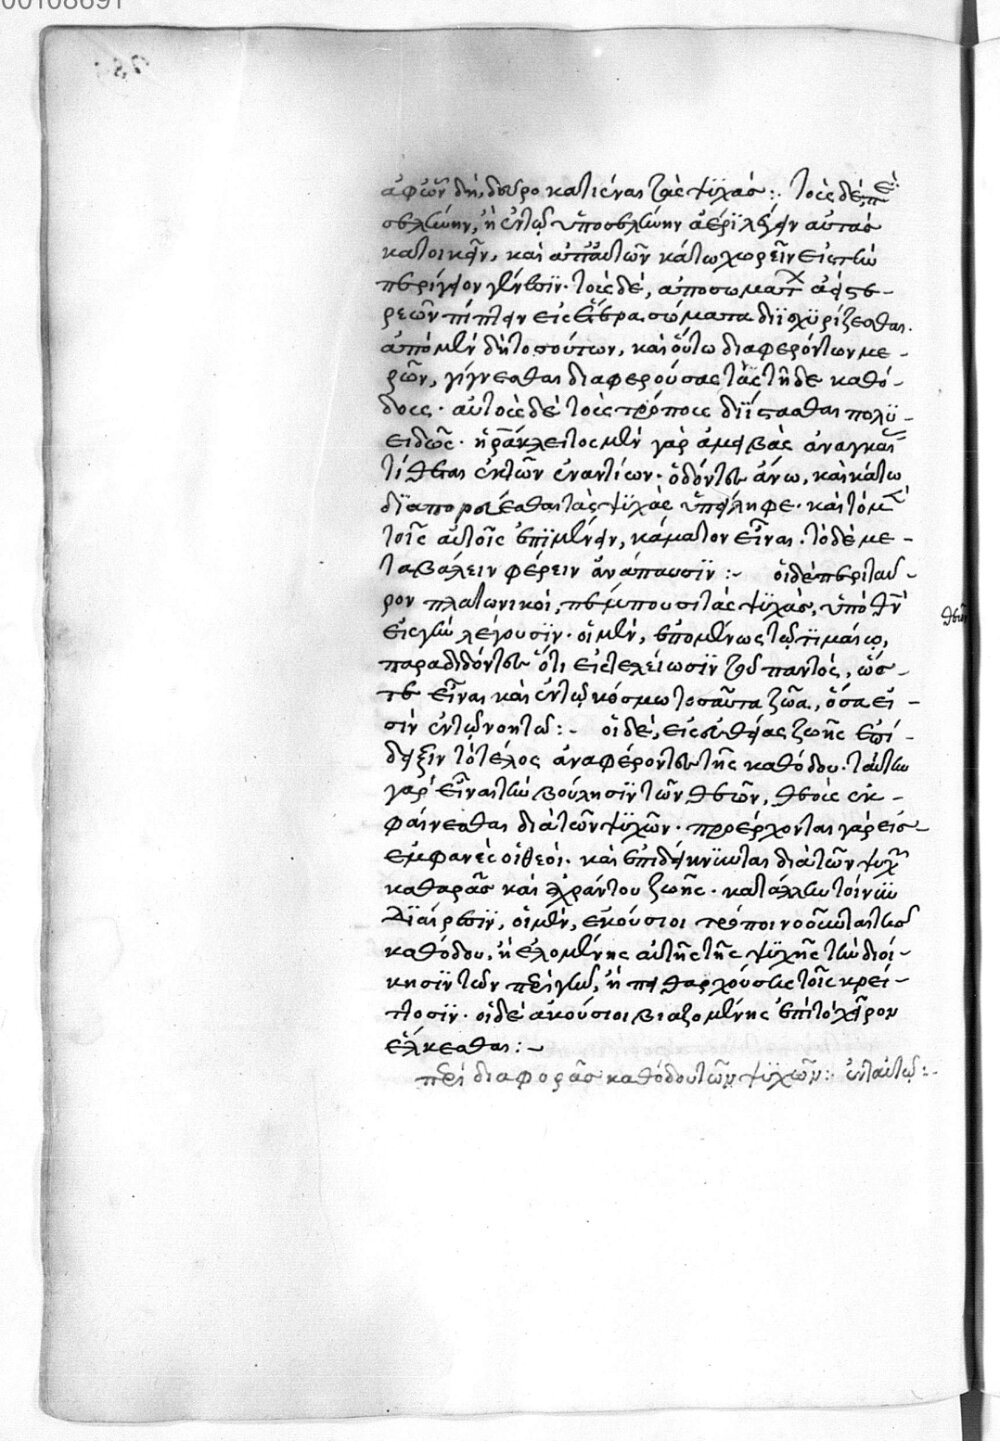 00108691
ἀφ' ὧν δὴ, δεῦρο κατιέναι τὰς ψυχάς :. τοῖς δὲ, ἐπὶ
σελήνην, ἢ ἐν τῷ ὑπὸ σελήνην ἀέρι λέγειν αὐτὰς
κατοικεῖν, καὶ ἀπ' αὐτῶν κάτω χωρεῖν εἰς τὴν
περίγειον γένεσιν· τοῖς δὲ, ἀπὸ σωμάτων ἀεὶ στε-
ρεῶν πίπτειν εἰς ἕτερα σώματα διϊσχυρίζεσθαι.
ἀπὸ μὲν δὴ τοσούτων, καὶ οὕτω διαφερόντων με-
ρῶν, γίγνεσθαι διαφερούσας τὰς τῇδε καθό-
δους. αὐτοῖς δὲ τοῖς τρόποις διΐστασθαι πολυ-
ειδῶς· ἡράκλειτος μὲν γὰρ ἀμοιβὰς ἀναγκαίας
τίθεται ἐκ τῶν ἐναντίων. ὁδόν τε ἄνω, καὶ κάτω
διαπορεύεσθαι τὰς ψυχὰς ὑπείληφε· καὶ τὸ μὲν
τοῖς αὐτοῖς ἐπιμένειν, κάματον εἶναι. τὸ δὲ με-
ταβάλειν φέρειν ἀνάπαυσιν :- οἱ δὲ περὶ ταῦ-
ρον πλατωνικοί, πέμπουσι τὰς ψυχὰς, ὑπὸ θεῶν
θεῶν
εἰς γῆν λέγουσιν· οἱ μὲν, ἑπομένως τῷ τιμαίῳ,
παραδιδόντες ὅτι εἰς τελείωσιν τοῦ παντὸς, ὥς-
τε εἶναι καὶ ἐν τῷ κόσμω τοσαῦτα ζῶα, ὅσα εἰ-
σὶν ἐν τῷ νοητῷ :- οἱ δὲ, εἰς θείας ζωῆς ἐπί-
δειξιν τὸ τέλος ἀναφέροντες τῆς καθόδου. ταύτην
γὰρ εἶναι τὴν βούλησιν τῶν θεῶν, θεοῖς ἐκ-
φαίνεσθαι διὰ τῶν ψυχῶν. προέρχονται γὰρ εἰς-
ἐμφανὲς οἱ θεοί. καὶ ἐπιδείκνυνται διὰ τῶν ψυχῶν
καθαρᾶς καὶ ἀχράντου ζωῆς. κατ' ἄλλην τοίνυν
διαίρεσιν, οἱ μὲν, ἑκούσιοι τρόποι νοοῦνται τῆς
καθόδου, ἢ ἑλομένης αὐτῆς τῆς ψυχῆς τὴν διοί-
κησιν τῶν περὶ γῆν, ἢ πειθαρχούσης τοῖς κρεί-
ττοσιν. οἱ δὲ ἀκούσιοι βιαζομένης ἐπὶ τὸ χεῖρον
ἕλκεσθαι :-
περὶ διαφορᾶς καθόδου τῶν ψυχῶν : ἐν ταυτῷ :-